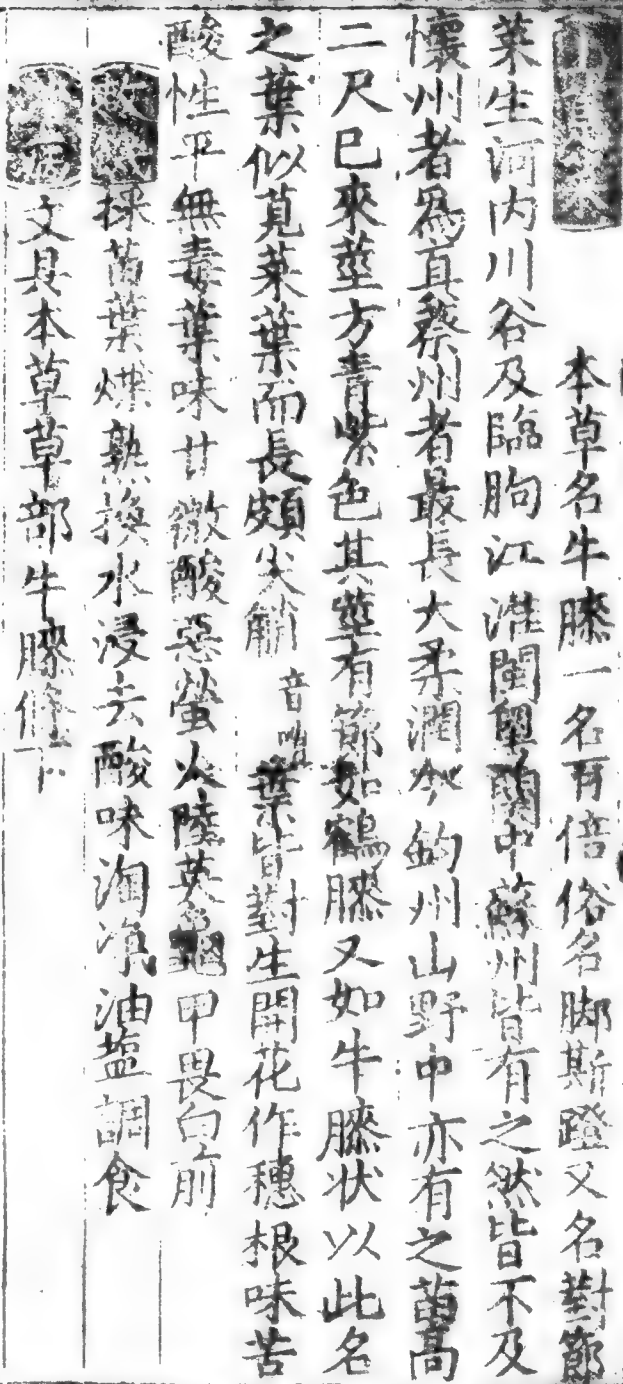 山莧菜 本草名牛膝一名百倍俗名脚斯蹬又名對節
菜生河内川谷及臨朐江淮閩粤關中蘇州皆有之然皆不及
懷州者爲真蔡州者最長大柔潤今鈞州山野中亦有之苗高
二尺已來莖方青紫色其莖有節如鶴膝又如牛膝狀以此名
之葉似莧菜葉而長頗尖艄音哨葉皆對生開花作穗根味苦
酸性平無毒葉味甘微酸惡螢火陸英龜甲畏白前
救飢採苗葉煠熟換水浸去酸味淘凈油塩調食
治病文具本草草部牛膝條下